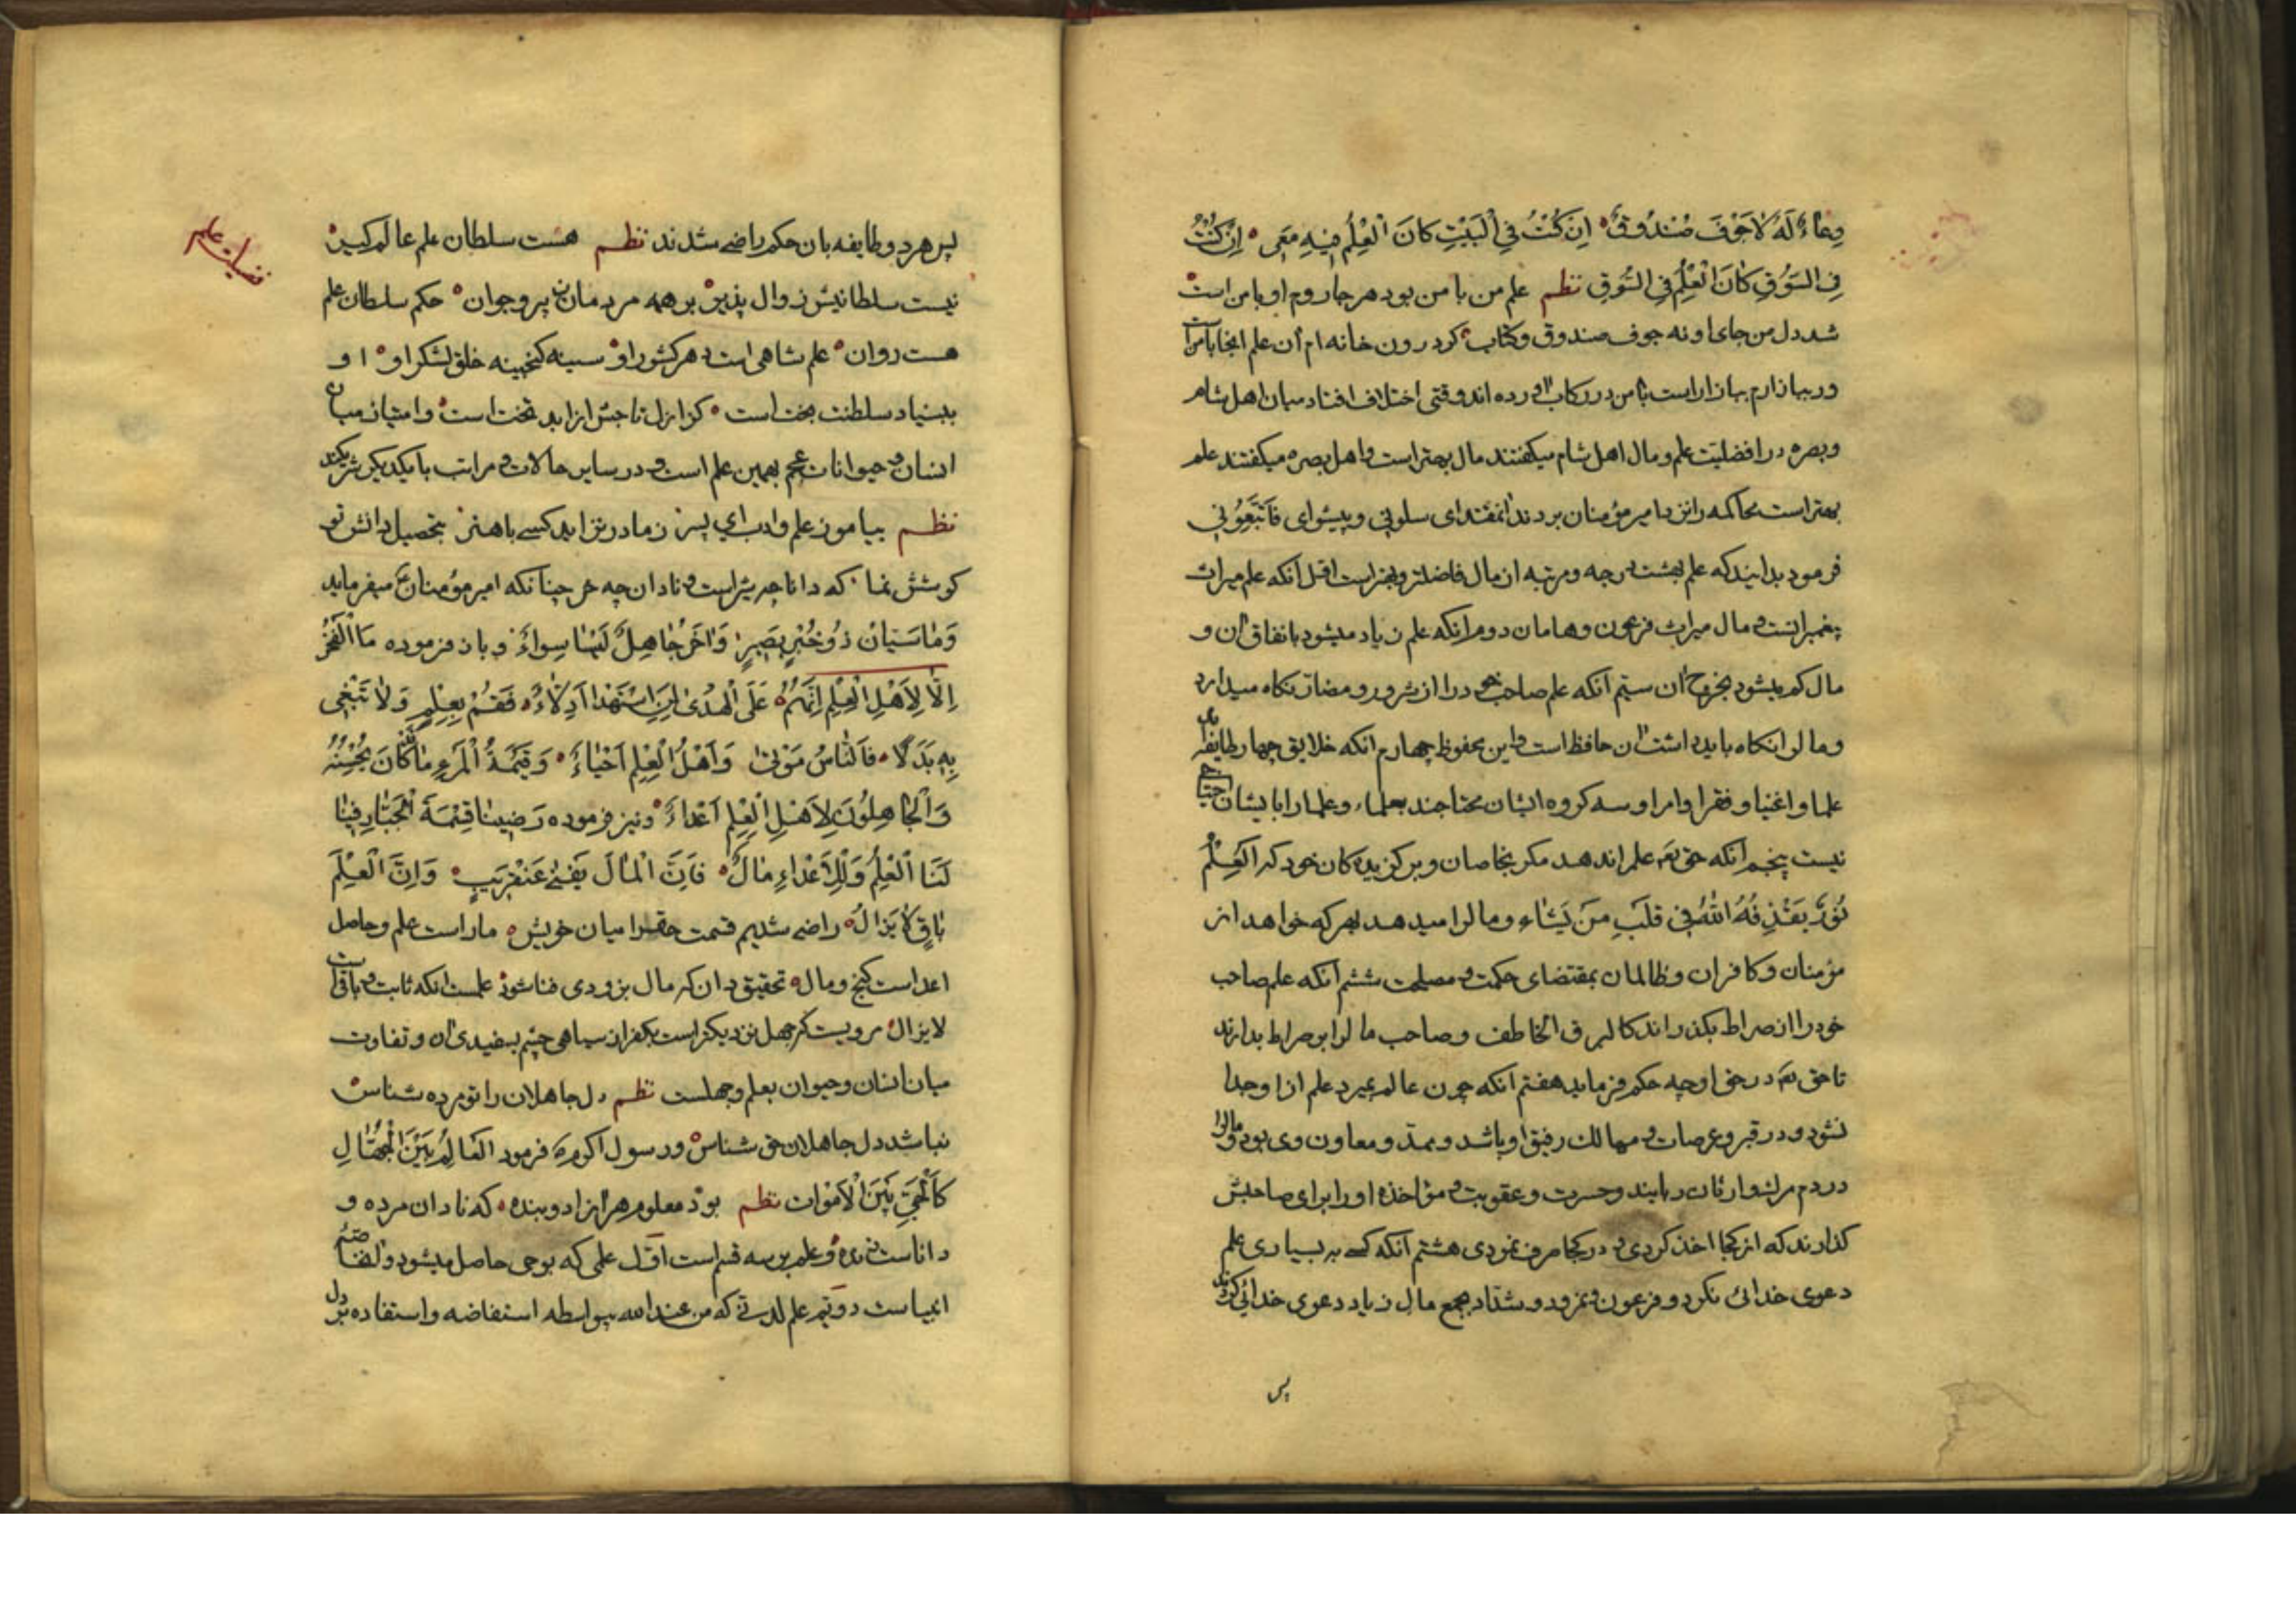 وِعَاءٌ لَهُ لَا جَوْفَ صَنْدُوقٍ اِنْ كُنْتُ فِي الْبَيْتِ كَانَ الْعِلْمُ فِيهِ مَعِي اِنْ كُنْتُ
فِي السُّوقِ كَانَ الْعِلْمُ فِي السُّوقِ نظم علم من با من بود هر جا روم او با من است
شد دل من جای او نه جوف صندوق و کتاب کر درون خانه ام آن علم اینجا با من است
ور ببازارم ببازار است با من در رکاب آورده اند وقتی اختلاف افتاد میان اهل شام
و بصره در افضلیت علم و مال اهل شام میکفتند مال بهتر است و اهل بصره میکفتند علم
بهتر است محاکمه را نزد امیر مؤمنان بردند آنمقتدای سلونی و پیشوای فَاتَّبِعُونِي
فرمود بدانید که علم بهشت درجه و مرتبه از مال فاضلتر و بهتر است اول آنکه علم میراث
پیغمبرانست و مال میراث فرعون و هامان دوم آنکه علم زیاد میشود بانفاق آن و
مال کم میشود بخرج آن سیّم آنکه علم صاحب خود را از شرور و مضار نکاه میدارد
و مال را نکاه باید داشت آن حافظ است و این محفوظ چهارم آنکه خلایق چهار طایفه اند
علما و اغنیا و فقرا و امرا و سه کروه ایشان محتاجند بعلماء و علما را بایشان احتیاج
نیست پنجم آنکه حق تعه علم را ندهد مکر بخاصان و برکزیده کان خود که اَلْعِلْمُ
نُورٌ يَقْذِفُهُ اللّٰهُ فِي قَلْبِ مَنْ يَشَاء و مال را میدهد بهر که خواهد از
مؤمنان و کافران و ظالمان بمقتضای حکمت و مصلحت ششم آنکه علم صاحب
خود را از صراط بکذراند کالبرق الخاطف و صاحب مال را بر صراط بدارند
تا حق تعه در حق او چه حکم فرماید هفتم آنکه چون عالم بمیرد علم از او جدا
نشود و در قبر و عرصات و مهالک رفیق او باشد و ممدّ و معاون وی بود و مال را
در دم مرک وارثان ربایند و حسرت و عقوبت و مؤاخذه او را برای صاحبش
کذارند که از کجا اخذ کردی و در کجا صرف نمودی هشتم آنکه کسے به بسیاری علم
دعوی خدائی نکرد و فرعون و نمرود و شدّاد بجمع مال زیاد دعوی خدائی کردند
پس
پس هر دو طایفه بان حکم راضے شدند نظم هست سلطان علم عالم کیر
نیست سلطانیش زوال پذیر بر همه مردمان ز پیر و جوان حکم سلطان علم
هست روان علم شاهی است هر کشور او سینه کنجینه خلق لشکر او او
ببنیاد سلطنت بخت است کز ازل تاجش از ابد تخت است و امتیاز میان
انسان و حیوانات عجم بهمین علم است و در سایر حالات و مراتب با یکدیکر شریکند
نظم بیاموز علم و ادب ای پسر ز مادر نزاید کسے با هنر بتحصیل دانش تو
کوشش نما که دانا چه شیر است و نادان چه خر چنانکه امیر مؤمنان ع میفرماید
وَمَا سَيَّانِ ذُو خُبْرٍ بَصِيرٍ وَآخَرُ جَاهِلٌ لَيْسَا سِوَاءٌ و باز فرموده مَا الْفَخْرُ
اِلَّا لِأَهْلِ الْعِلْمِ اِنَّهُمُ عَلَى الْهُدٰى لِمَنِ اسْتَهْدٰا اَدِلَّاءُ فَقُمْ بِعِلْمٍ وَلَا تَبْغِي
بِهِ بَدَلًا فَالنَّاسُ مَوْتٰى وَاَهْلُ الْعِلْمِ اَحْيَاءُ وَقِيمَةُ الْمَرْءِ مَا قَدْ كَانَ يُحْسِنُهُ
وَالْجَاهِلُونَ لِأَهْلِ الْعِلْمِ اَعْدَاءُ و نیز فرموده رَضِينَا قِسْمَةَ الْجَبَّارِ فِينَا
لَنَا الْعِلْمُ وَلِلْأَعْدَاءِ مَالٌ فَاِنَّ الْمَالَ يَفْنٰى عَنْقَرِيبٍ وَاِنَّ الْعِلْمَ
بَاقٍ لَا يَزَالُ راضے شدیم قسمت حق را میان خویش ما راست علم و حاصل
اعدا ست کنج و مال تحقیق دان که مال بزودی فنا شود علمست آنکه ثابت و باقی است
لا یزال مرویست که جهل نزدیکتر است بکفر از سیاهی چشم بسفیدی آن و تفاوت
میان انسان و حیوان بعلم و جهلست نظم دل جاهلان را تو مرده شناس
نباشد دل جاهلان حق شناس و رسول اکرم ص فرمود العَالِمُ بَيْنَ الْجُهَّالِ
كَالْحَيِّ بَيْنَ الْأَمْوَات نظم بود معلوم هر آزاد و بنده که نادان مرده و
دانا ست زنده و علم بر سه قسم است اوّل علمی که بوحی حاصل میشود و آن خاصّه
انبیاست دویّم علم لدنے که من عند الله بیواسطه استفاضه و استفاده بر دل
فضیلت علم